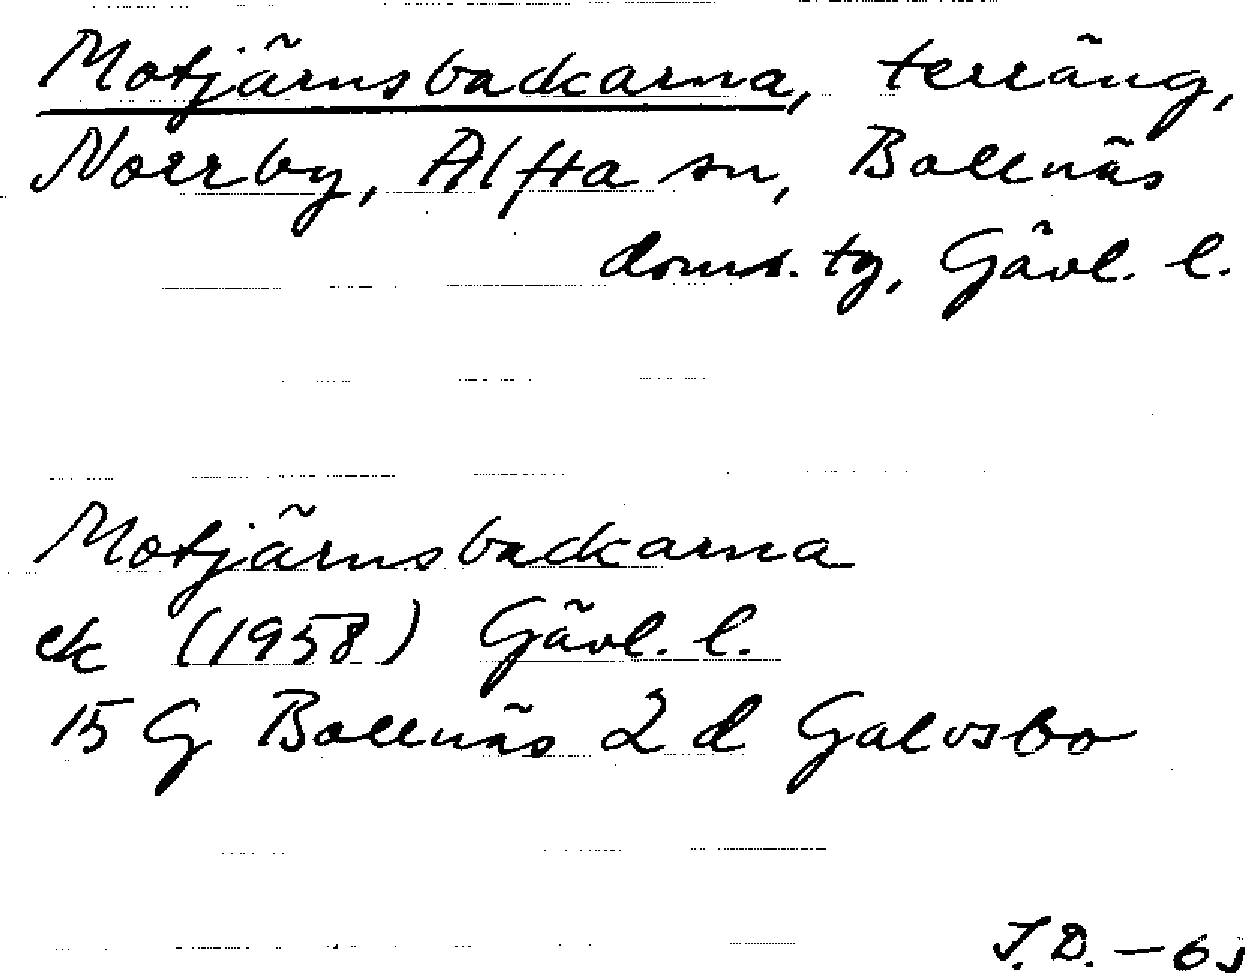 Motjärnsbackarna, terräng,
Norrby, Alfta sn, Bollnäs
doms. tg, Gävl. l.
Motjärnsbackarna
ek (1958) Gävl. l.
15 G Bollnäs 2 d Galvsbo
J.D. –